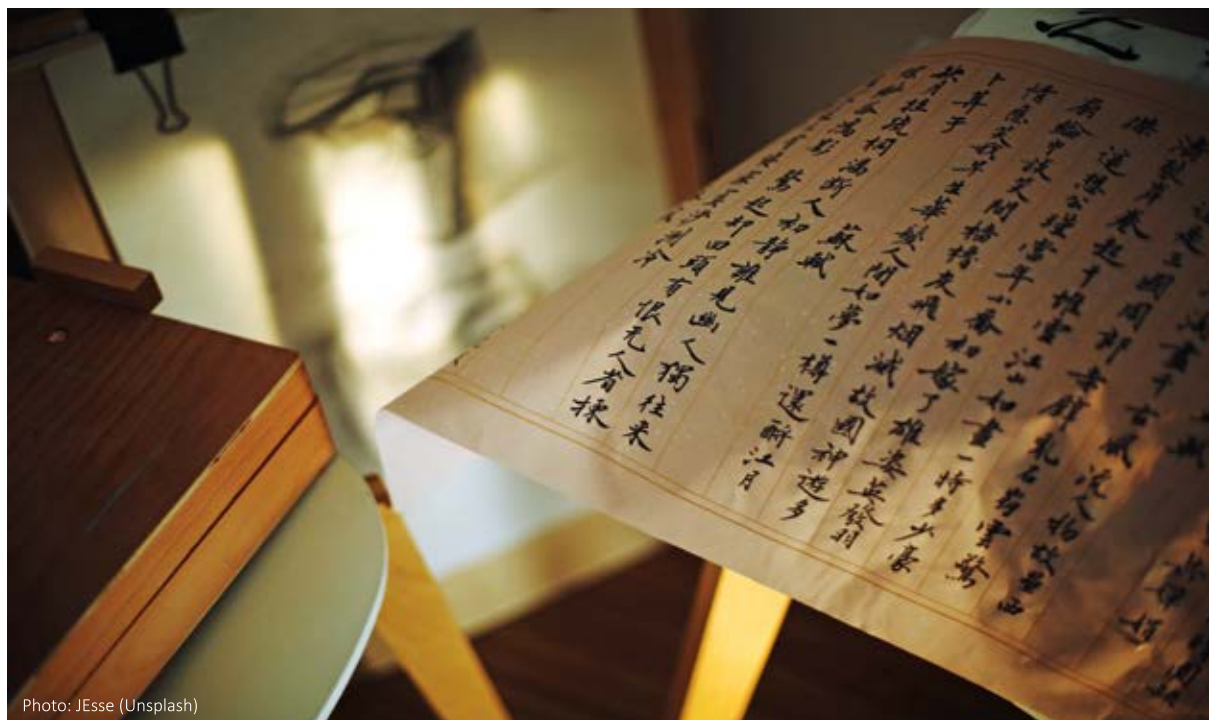 淘盡千古風流人物故壘西
道是三國周郎赤壁亂石崩雲驚
濤裂岸卷起千堆雪江山如畫一時多少豪
傑 遙想公瑾當年小喬初嫁了雄姿英發羽
扇綸巾談笑間檣櫓灰飛烟滅故國神遊多
情應笑我早生華髮人間如夢一樽還酹江月
卜算子 蘇軾
缺月挂疏桐漏斷人初靜誰見幽人獨往来
縹緲孤鴻影 驚起却回頭有恨无人省揀
沙洲冷
Photo: JEsse (Unsplash)